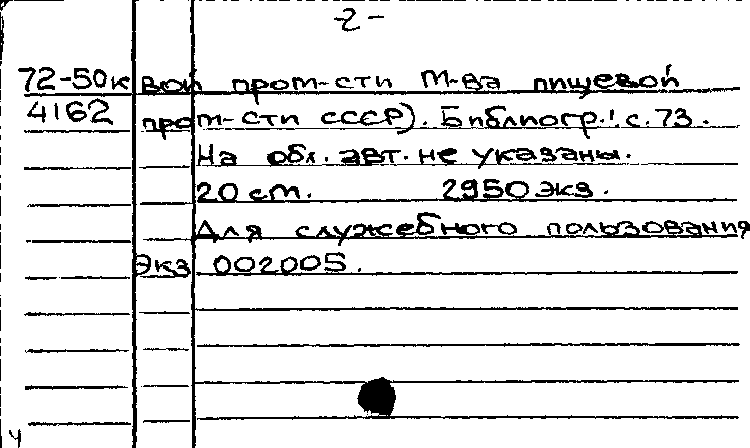 -2-
72-50к вой пром-сти М-ва пищевой
4162 пром-сти СССР). Библиогр.: с. 73.
На обл. авт. не указаны.
20 см. 2950 экз.
Для служебного пользования
Экз 002005.
ч